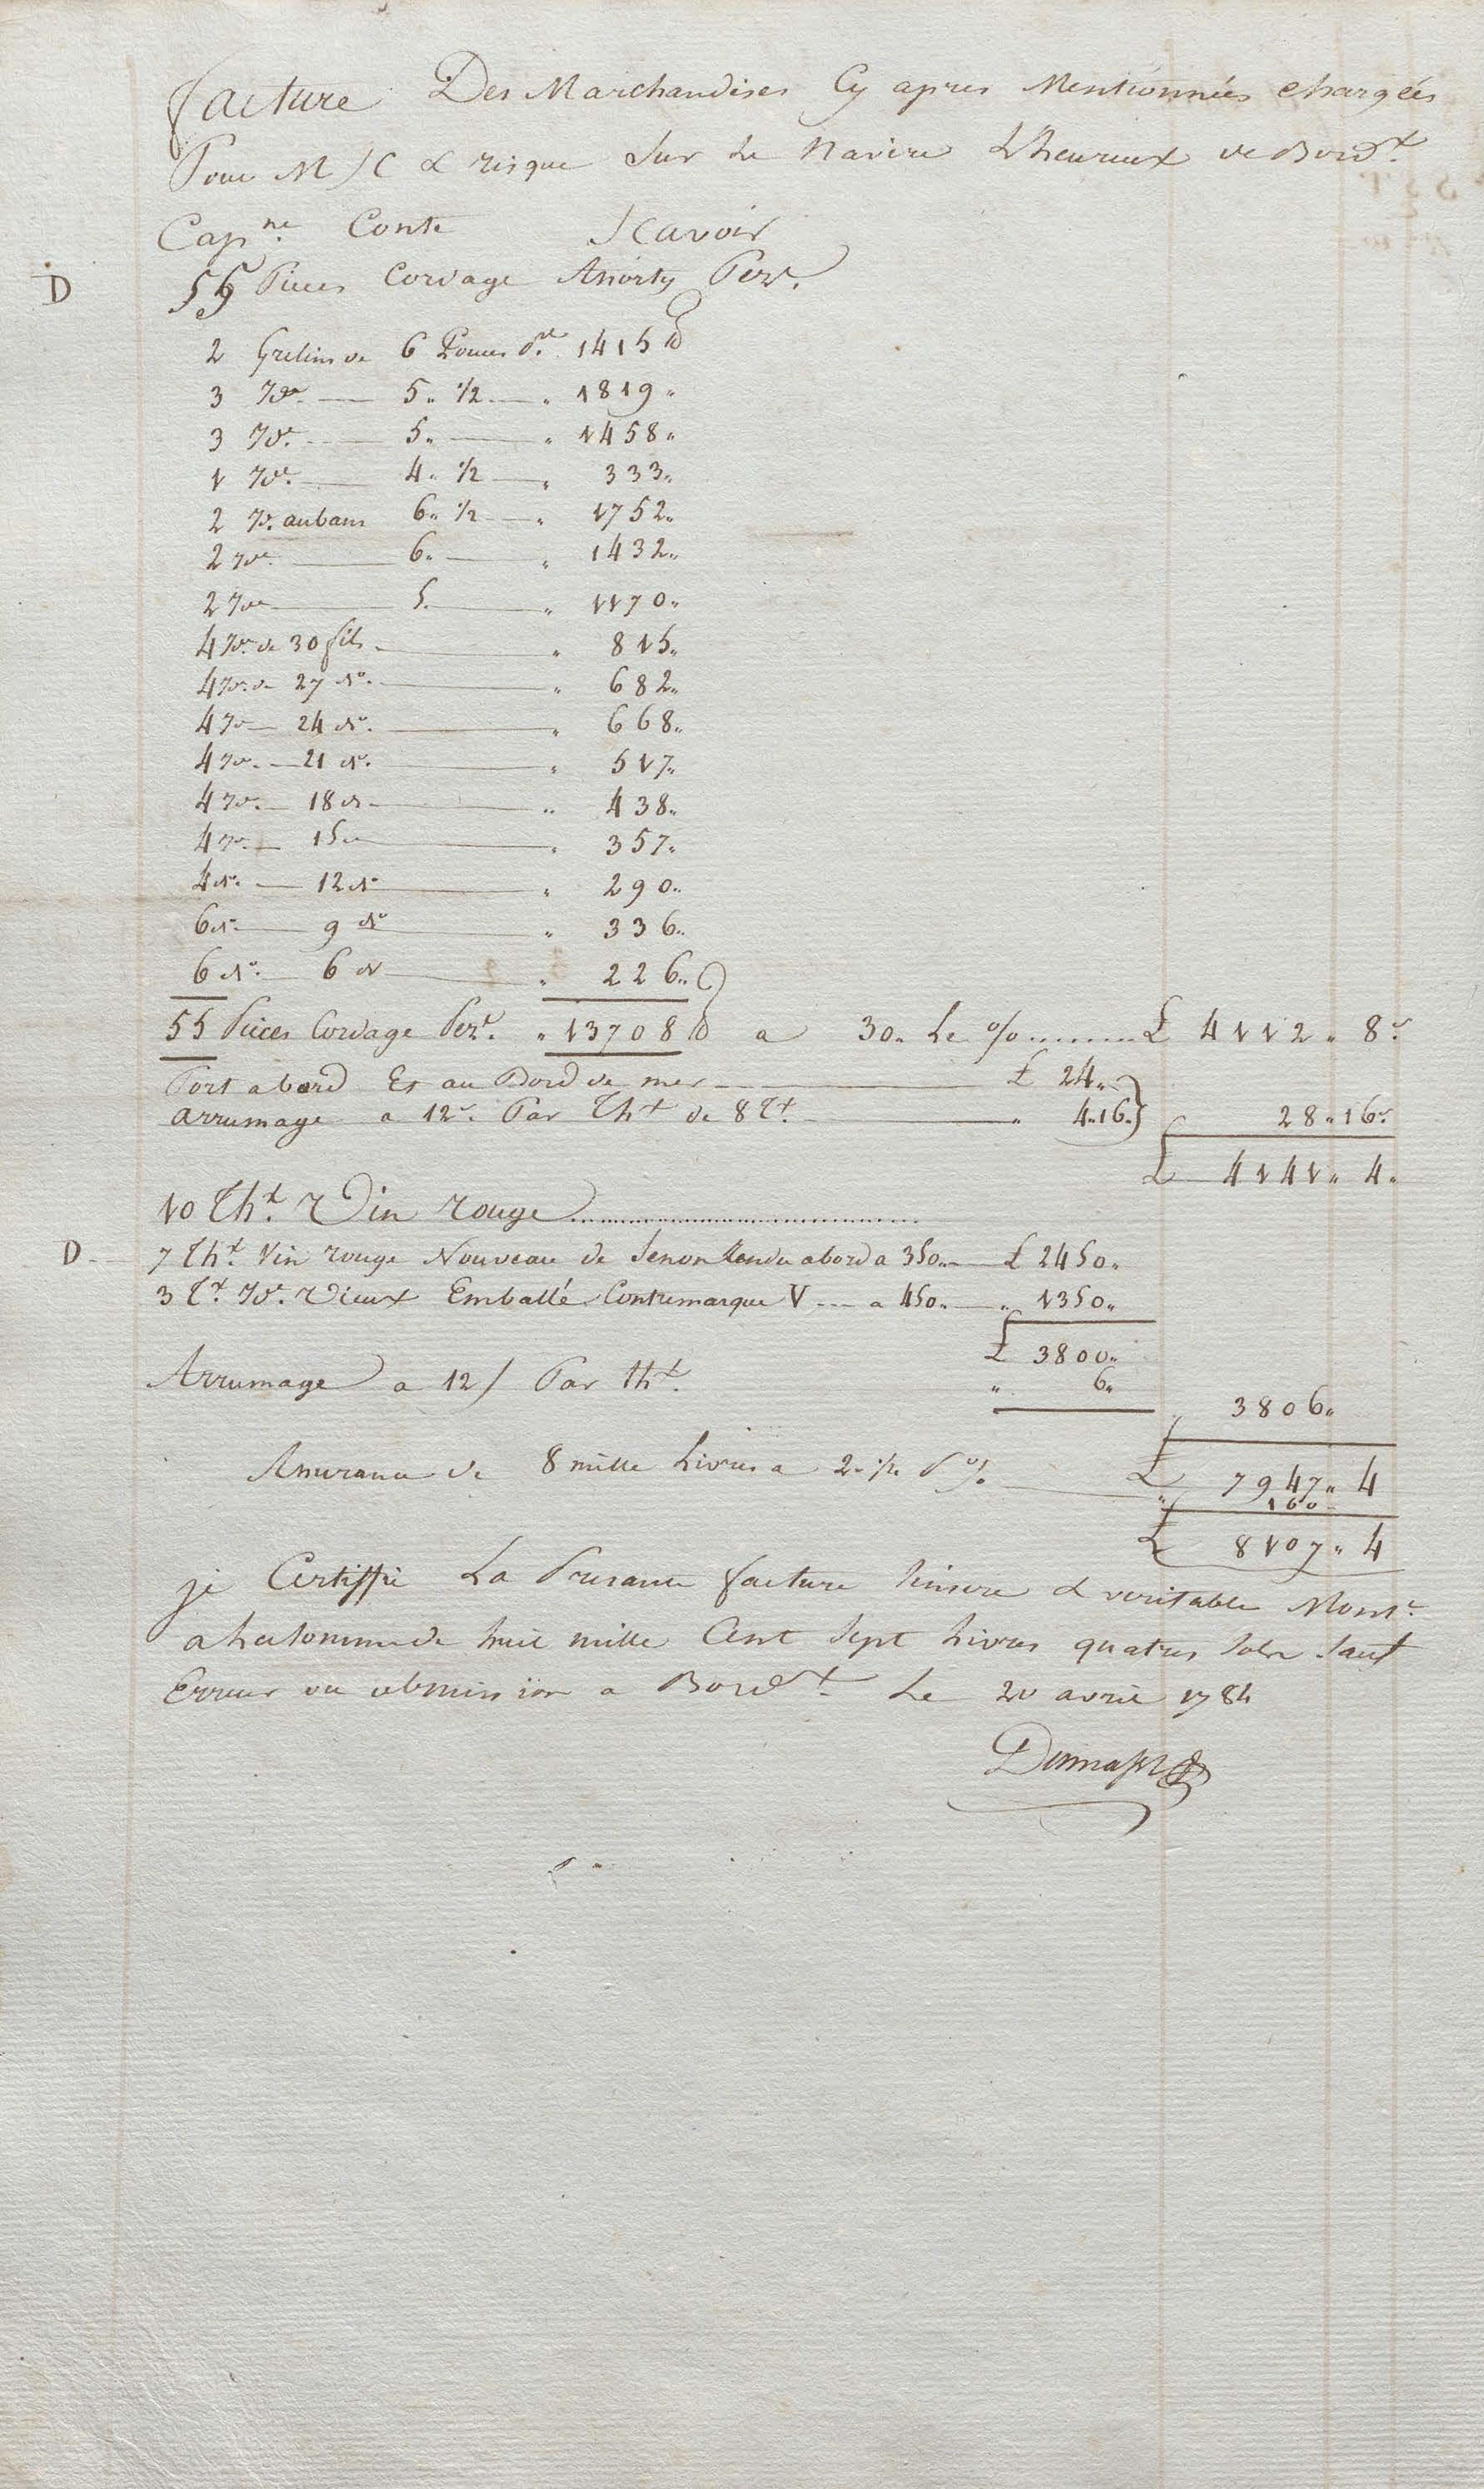 facture Des Marchandises Cy apres Mentionnées chargées
Pour M/C & risque Sur Le Navire L'heureux de Bord.x
Cap.ne Conte Scavoir
D 55 Pieces Cordage Assorty Pez.t
2 Grelins de 6 Pouces P.t 1415 lb
3 Id.m — 5 „ 1/2 — „ 1819 „
3 Id.m — 5 „ — „ 1458 „
1 Id.m — 4 „ 1/2 — „ 333 „
2 Id. aubans 6 „ 1/2 — „ 1752 „
2 Id.m — 6 „ — „ 1432 „
2 Id.m — 5. — „ 1170 „
4 Id.m de 30 fils — „ 815 „
4 Id.m de 27 d.o — „ 682 „
4 Id.m — 24 d.o — „ 668 „
4 Id.m — 21 d.o — „ 517 „
4 Id.m — 18 d.o — „ 438 „
4 Id.m — 15 d.o — „ 357 „
4 d.o — 12 d.o — „ 290 „
6 d.o — 9 d.o — „ 336 „
6 d.o — 6 d.o — „ 226 „
55 Pieces Cordage Pez.t „ 13708 lb a 30 „ Le % ...... £ 4112 „ 8 s
Port abord Et au Bord de mer — £ 24 „
arrumage a 12 s. Par Th.x de 8 T.x — „ 4 „ 16 „ } 28 „ 16 s
£ 4141 „ 4 „
10 Th.x Vin rouge ............
D — 7 Th.x Vin rouge Nouveau de Senon Rendu abord a 350 „ — £ 2450 „
3 T.x Id.m Vieux Emballé Contremarque V --- a 450 „ — „ 1350 „
£ 3800 „
Arrumage a 12/ Par th.x „ 6 „
3806 „
£ 7947 „ 4
Assurance de 8 mille Livres a 2 „ % P % — „ 160 —
£ 8107 „ 4
je Certiffie La Presante facture Sincere & veritable Mont.t
a La Somme de huit mille Cent Sept Livres quatres Sols Sauf
Erreur ou obmission a Bord.x Le 20 avril 1784